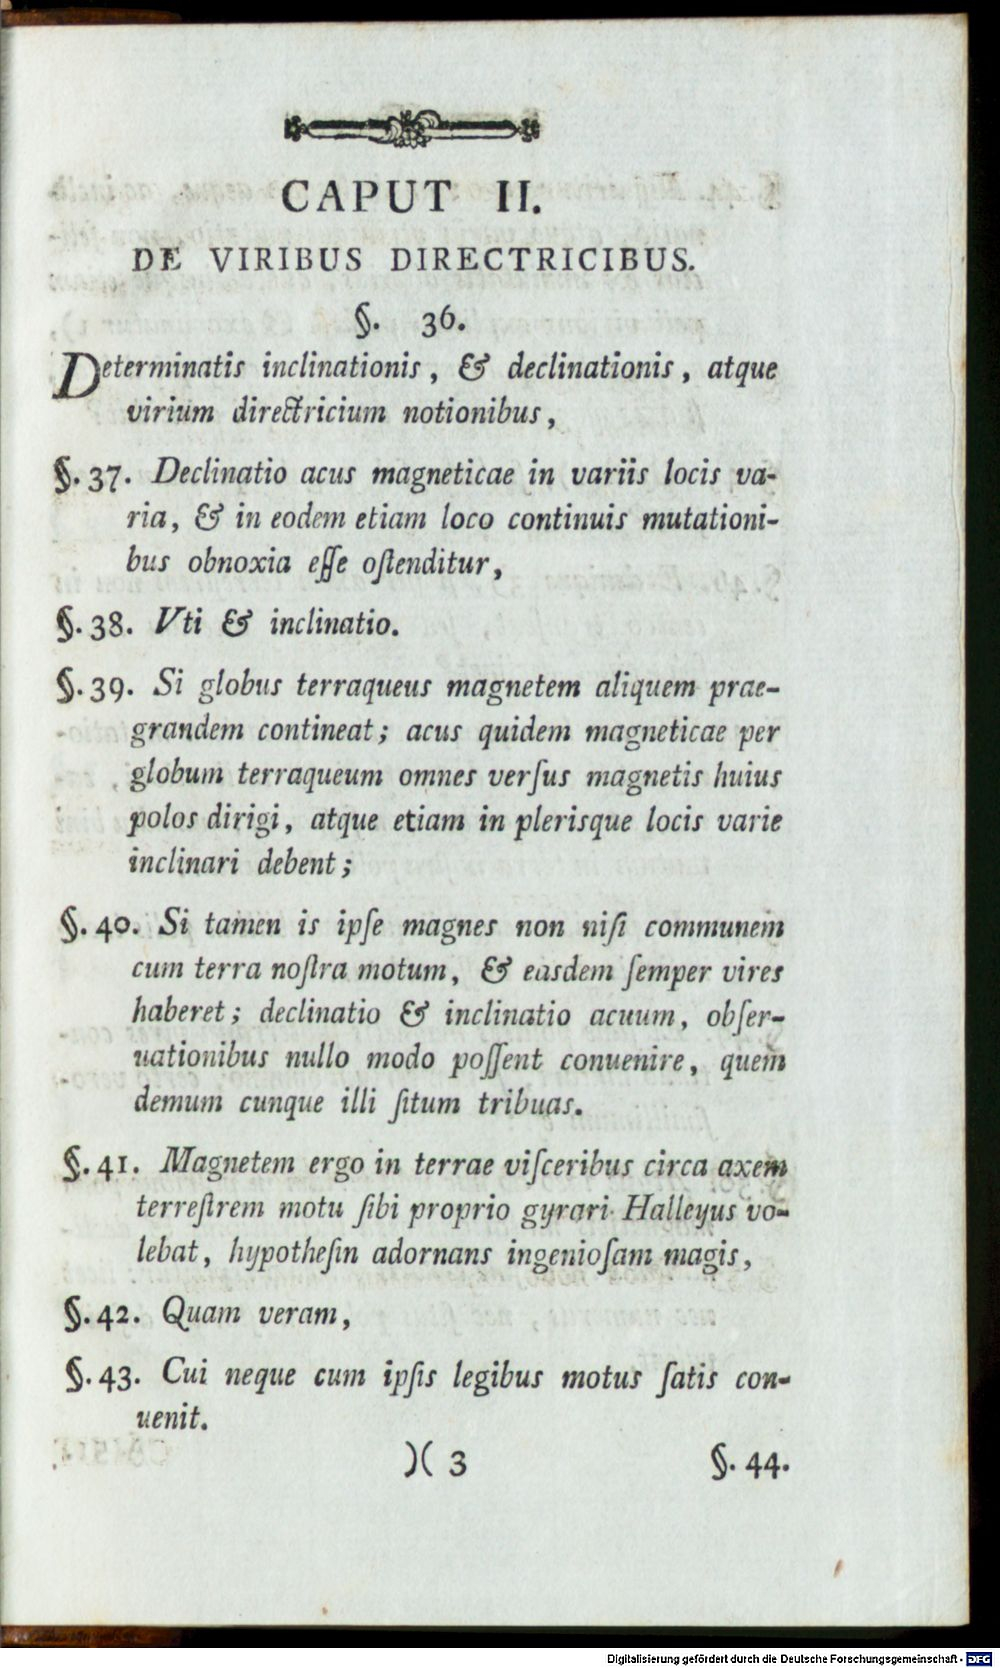 CAPUT II.
DE VIRIBUS DIRECTRICIBUS.
§. 36.
Determinatis inclinationis, & declinationis, atque
virium directricium notionibus,
§. 37. Declinatio acus magneticae in variis locis va-
ria, & in eodem etiam loco continuis mutationi-
bus obnoxia eſſe oſtenditur,
§. 38. Vti & inclinatio.
§. 39. Si globus terraqueus magnetem aliquem prae-
grandem contineat; acus quidem magneticae per
globum terraqueum omnes verſus magnetis huius
polos dirigi, atque etiam in plerisque locis varie
inclinari debent;
§. 40. Si tamen is ipſe magnes non niſi communem
cum terra noſtra motum, & easdem ſemper vires
haberet; declinatio & inclinatio acuum, obſer-
uationibus nullo modo poſſent conuenire, quem
demum cunque illi ſitum tribuas.
§. 41. Magnetem ergo in terrae viſceribus circa axem
terreſtrem motu ſibi proprio gyrari Halleyus vo-
lebat, hypotheſin adornans ingenioſam magis,
§. 42. Quam veram,
§. 43. Cui neque cum ipſis legibus motus ſatis con-
uenit.
)( 3 §. 44.
Digitalisierung gefördert durch die Deutsche Forschungsgemeinschaft - DFG